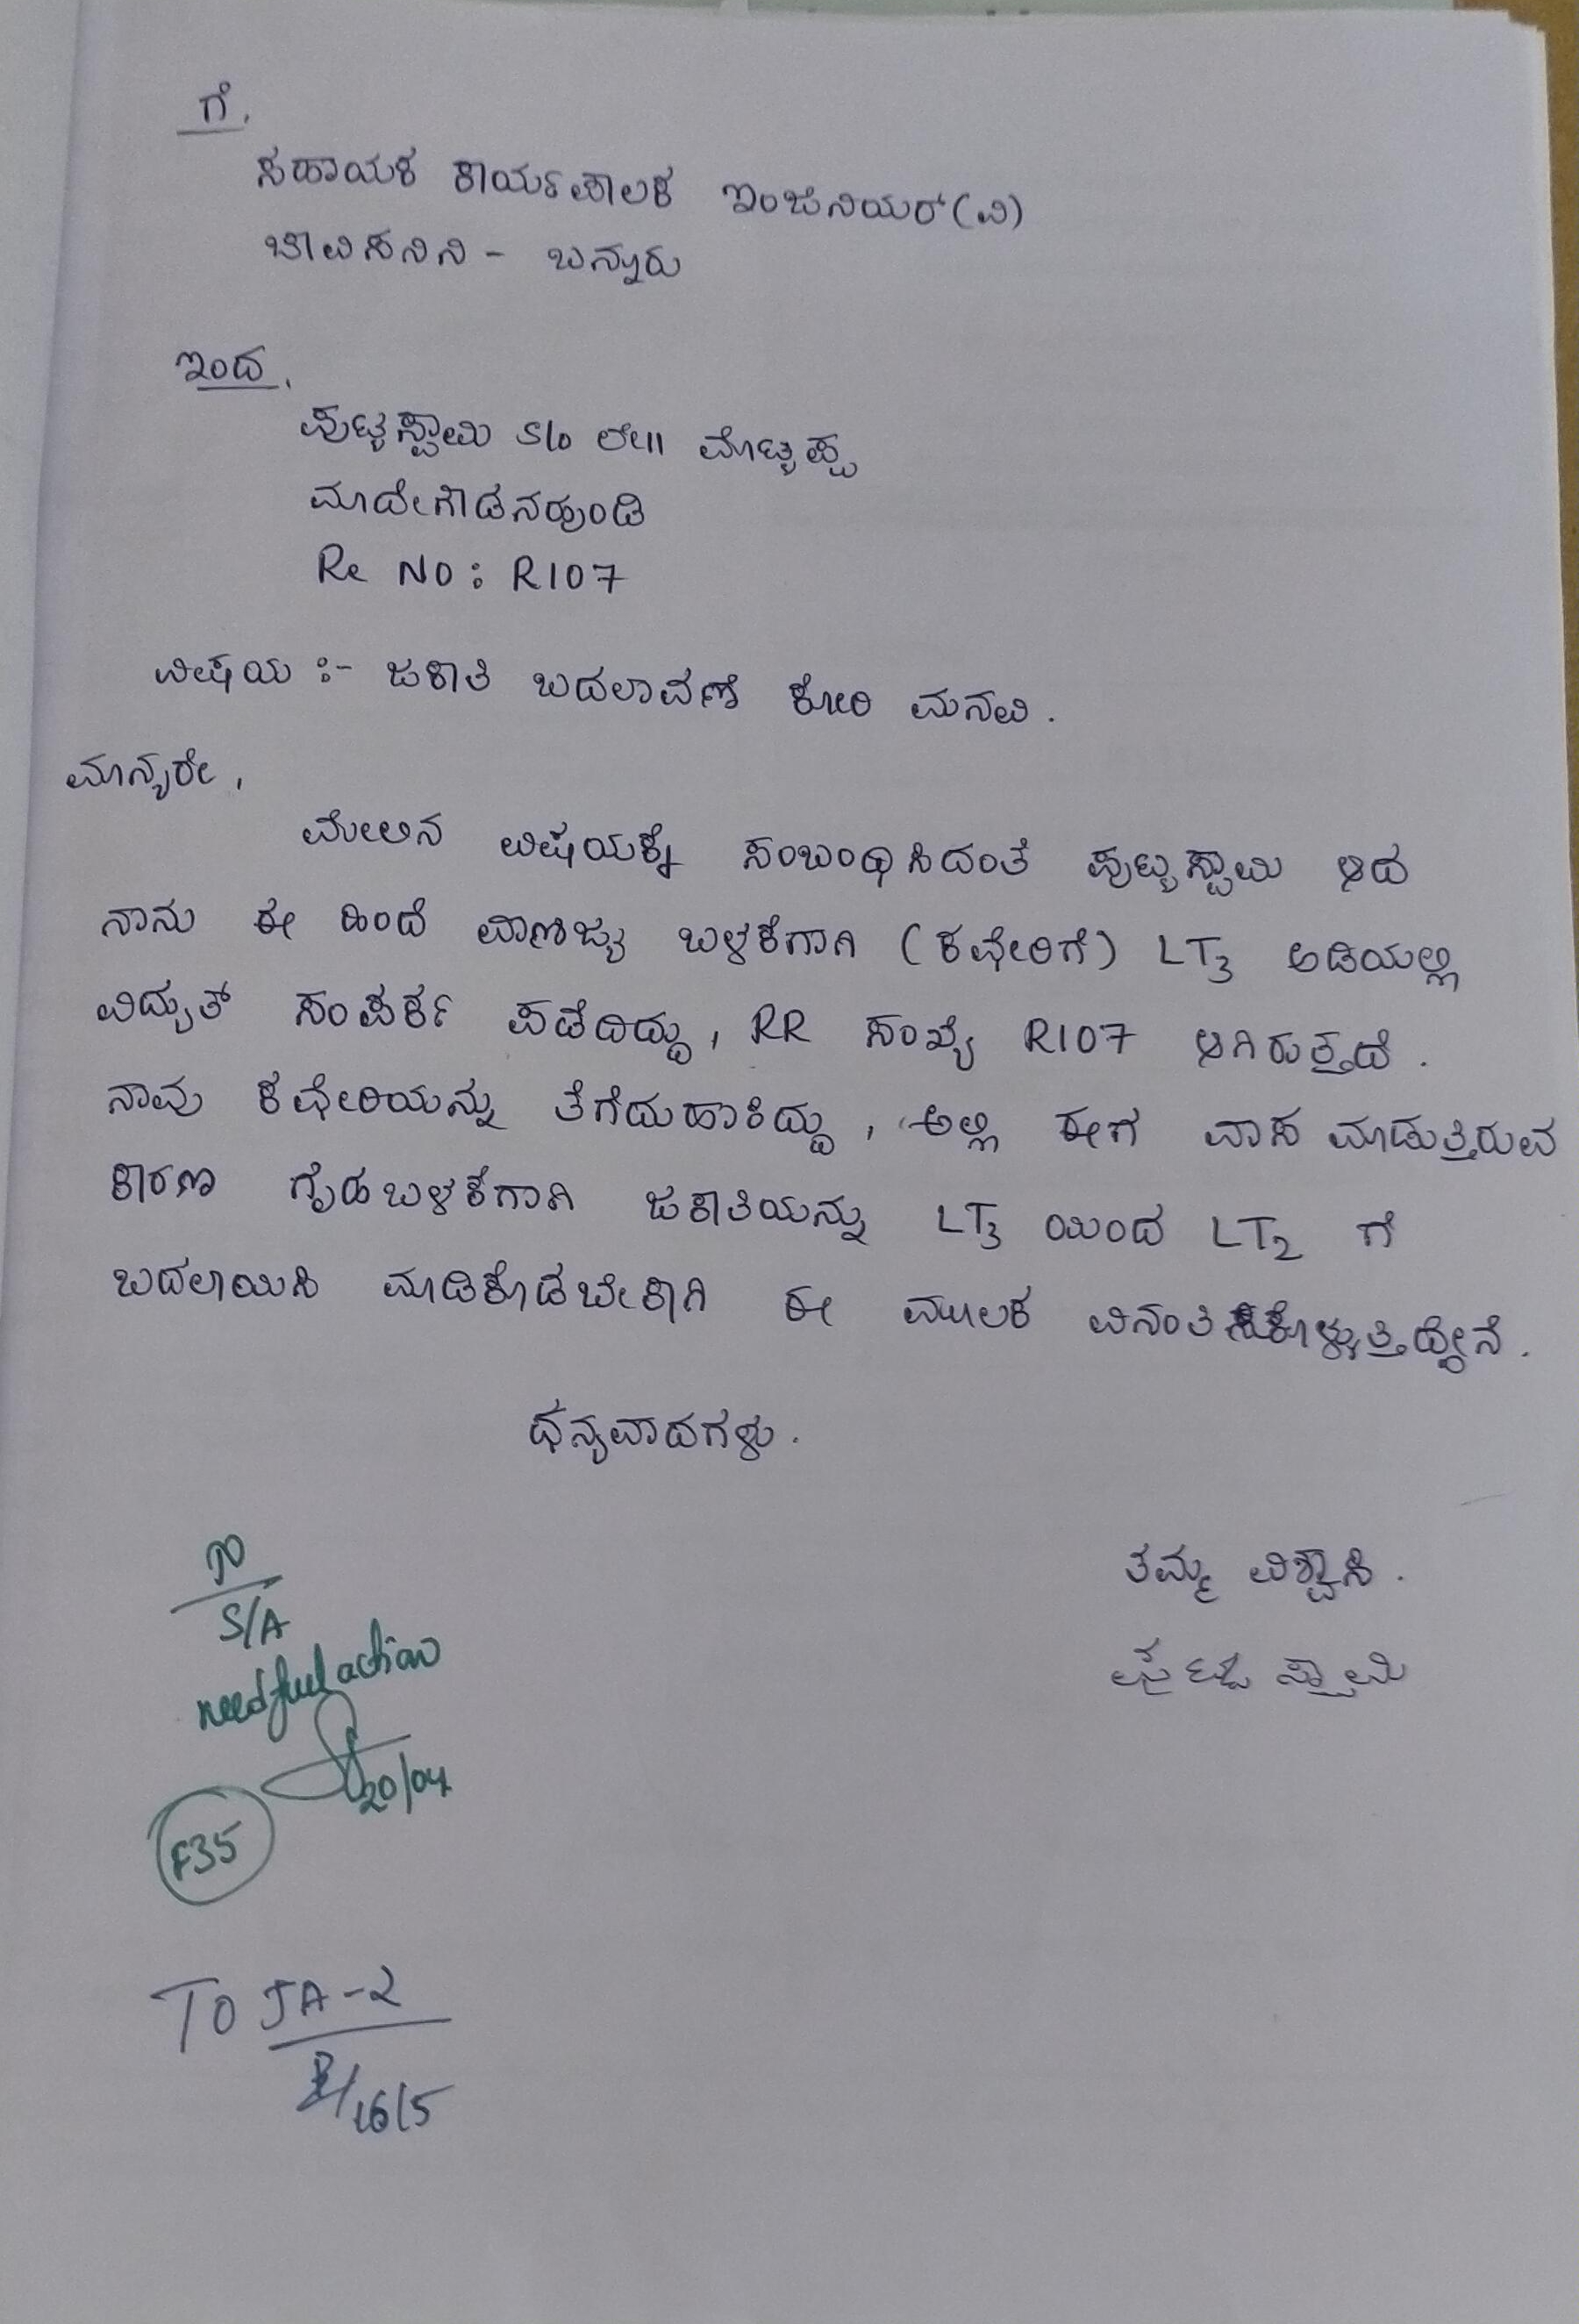 ಗೆ,
ಸಹಾಯಕ ಕಾರ್ಯಪಾಲಕ ಇಂಜಿನಿಯರ್ (ವಿ)
ಚಾವಿಸನಿನಿ - ಬನ್ನೂರು
ಇಂದ,
ಪುಟ್ಟಸ್ವಾಮಿ S/o ಲೇ|| ಮೊಟ್ಟಪ್ಪ
ಮಾದೇಗೌಡನಹುಂಡಿ
Re NO: R107
ವಿಷಯ :- ಜಕಾತಿ ಬದಲಾವಣೆ ಕೋರಿ ಮನವಿ.
ಮಾನ್ಯರೇ,
ಮೇಲಿನ ವಿಷಯಕ್ಕೆ ಸಂಬಂಧಿಸಿದಂತೆ ಪುಟ್ಟಸ್ವಾಮಿ ಆದ
ನಾನು ಈ ಹಿಂದೆ ವಾಣಿಜ್ಯ ಬಳಕೆಗಾಗಿ (ಕಛೇರಿಗೆ) LT3 ಅಡಿಯಲ್ಲಿ
ವಿದ್ಯುತ್ ಸಂಪರ್ಕ ಪಡೆದಿದ್ದು, RR ಸಂಖ್ಯೆ R107 ಆಗಿರುತ್ತದೆ.
ನಾವು ಕಛೇರಿಯನ್ನು ತೆಗೆದುಹಾಕಿದ್ದು, ಅಲ್ಲಿ ಈಗ ವಾಸ ಮಾಡುತ್ತಿರುವ
ಕಾರಣ ಗೃಹಬಳಕೆಗಾಗಿ ಜಕಾತಿಯನ್ನು LT3 ಯಿಂದ LT2 ಗೆ
ಬದಲಾಯಿಸಿ ಮಾಡಿಕೊಡಬೇಕಾಗಿ ಈ ಮೂಲಕ ವಿನಂತಿಸಿಕೊಳ್ಳುತ್ತಿದ್ದೇನೆ.
ಧನ್ಯವಾದಗಳು.
ತಮ್ಮ ವಿಶ್ವಾಸಿ.
ಪುಟ್ಟಸ್ವಾಮಿ
S/A
needful action
20/04
F35
TO JA-2
16/5